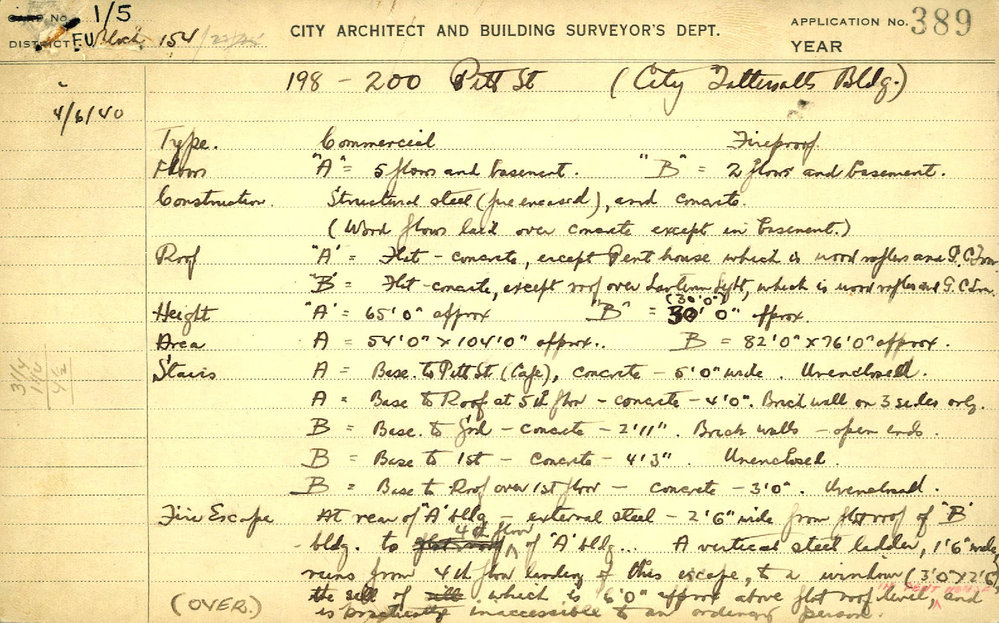 CARD No. 1/5
DISTRICT F.U Block 154
CITY ARCHITECT AND BUILDING SURVEYOR'S DEPT.
APPLICATION No. 389
YEAR
198 - 200 Pitt St (City Tattersalls Bldg.)
4/6/40
Type. Commercial Fireproof.
Floors "A" = 5 floors and basement. "B" = 2 floors and basement.
Construction. Structural steel (fire encased), and concrete.
(Wood floors laid over concrete except in basement.)
Roof "A" = Flat - concrete, except Pent house which is wood rafters and G.C. Iron
"B" = Flat - concrete, except roof over Lantern Light, which is wood rafters and G.C. Iron.
(30'0")
Height "A" = 65'0" approx "B" = 30'0" approx.
Area A = 54'0" x 104'0" approx.. B = 82'0" x 76'0" approx.
Stairs A = Base. to Pitt St (Cafe), concrete - 5'0" wide. Unenclosed.
A = Base to Roof at 5th floor - concrete - 4'0". Brick wall on 3 sides only.
B = Base. to Grd - concrete - 2'11". Brick walls - open ends.
B = Base to 1st - concrete - 4'3". Unenclosed.
B = Base to Roof over 1st floor - concrete - 3'0". Unenclosed.
3 1/4
1 1/4
4 1/2
Fire Escape At rear of "A" bldg - external steel - 2'6" wide from flat roof of "B"
4th floor
bldg. to flat roof of "A" bldg... A vertical steel ladder, 1'6" wide,
runs from 4th floor landing of this escape, to a window (3'0" x 2'6")
IN PENT HOUSE
the sill of which is 6'0" approx above flat roof level, and
(OVER.) is practically inaccessible to an ordinary person.